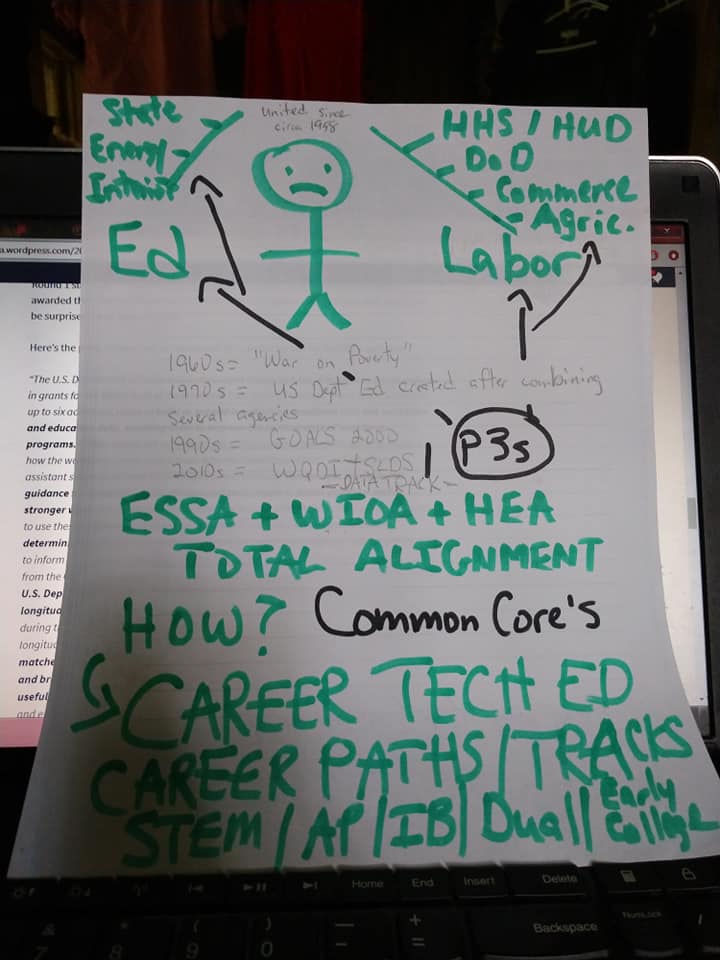 State
Energy
Interior
United since
circa 1958
HHS / HUD
DoD
Commerce
Agric.
Ed
Labor
1960s = "War on Poverty"
1970s = US Dept Ed created after combining
several agencies
1990s = GOALS 2000
2010s = WQDI + SLDS
-DATA TRACK-
P3s
ESSA + WIOA + HEA
TOTAL ALIGNMENT
HOW? Common Core's
CAREER TECH ED
CAREER PATHS/TRACKS
STEM / AP / IB / Dual / Early
College
a.wordpress.com/20
Round 1
awarded th
be surprise
Here's the
"The U.S. D
in grants fo
up to six ac
and educa
programs.
how the wo
assistant s
guidance
stronger
to use thes
determin
to inform
from the
U.S. Dep
longitud
during t
longitud
matche
and br
useful
and e
Home
End
Insert
Delete
NumLock
&
*
(
)
—
+
7
8
9
0
-
=
Backspace